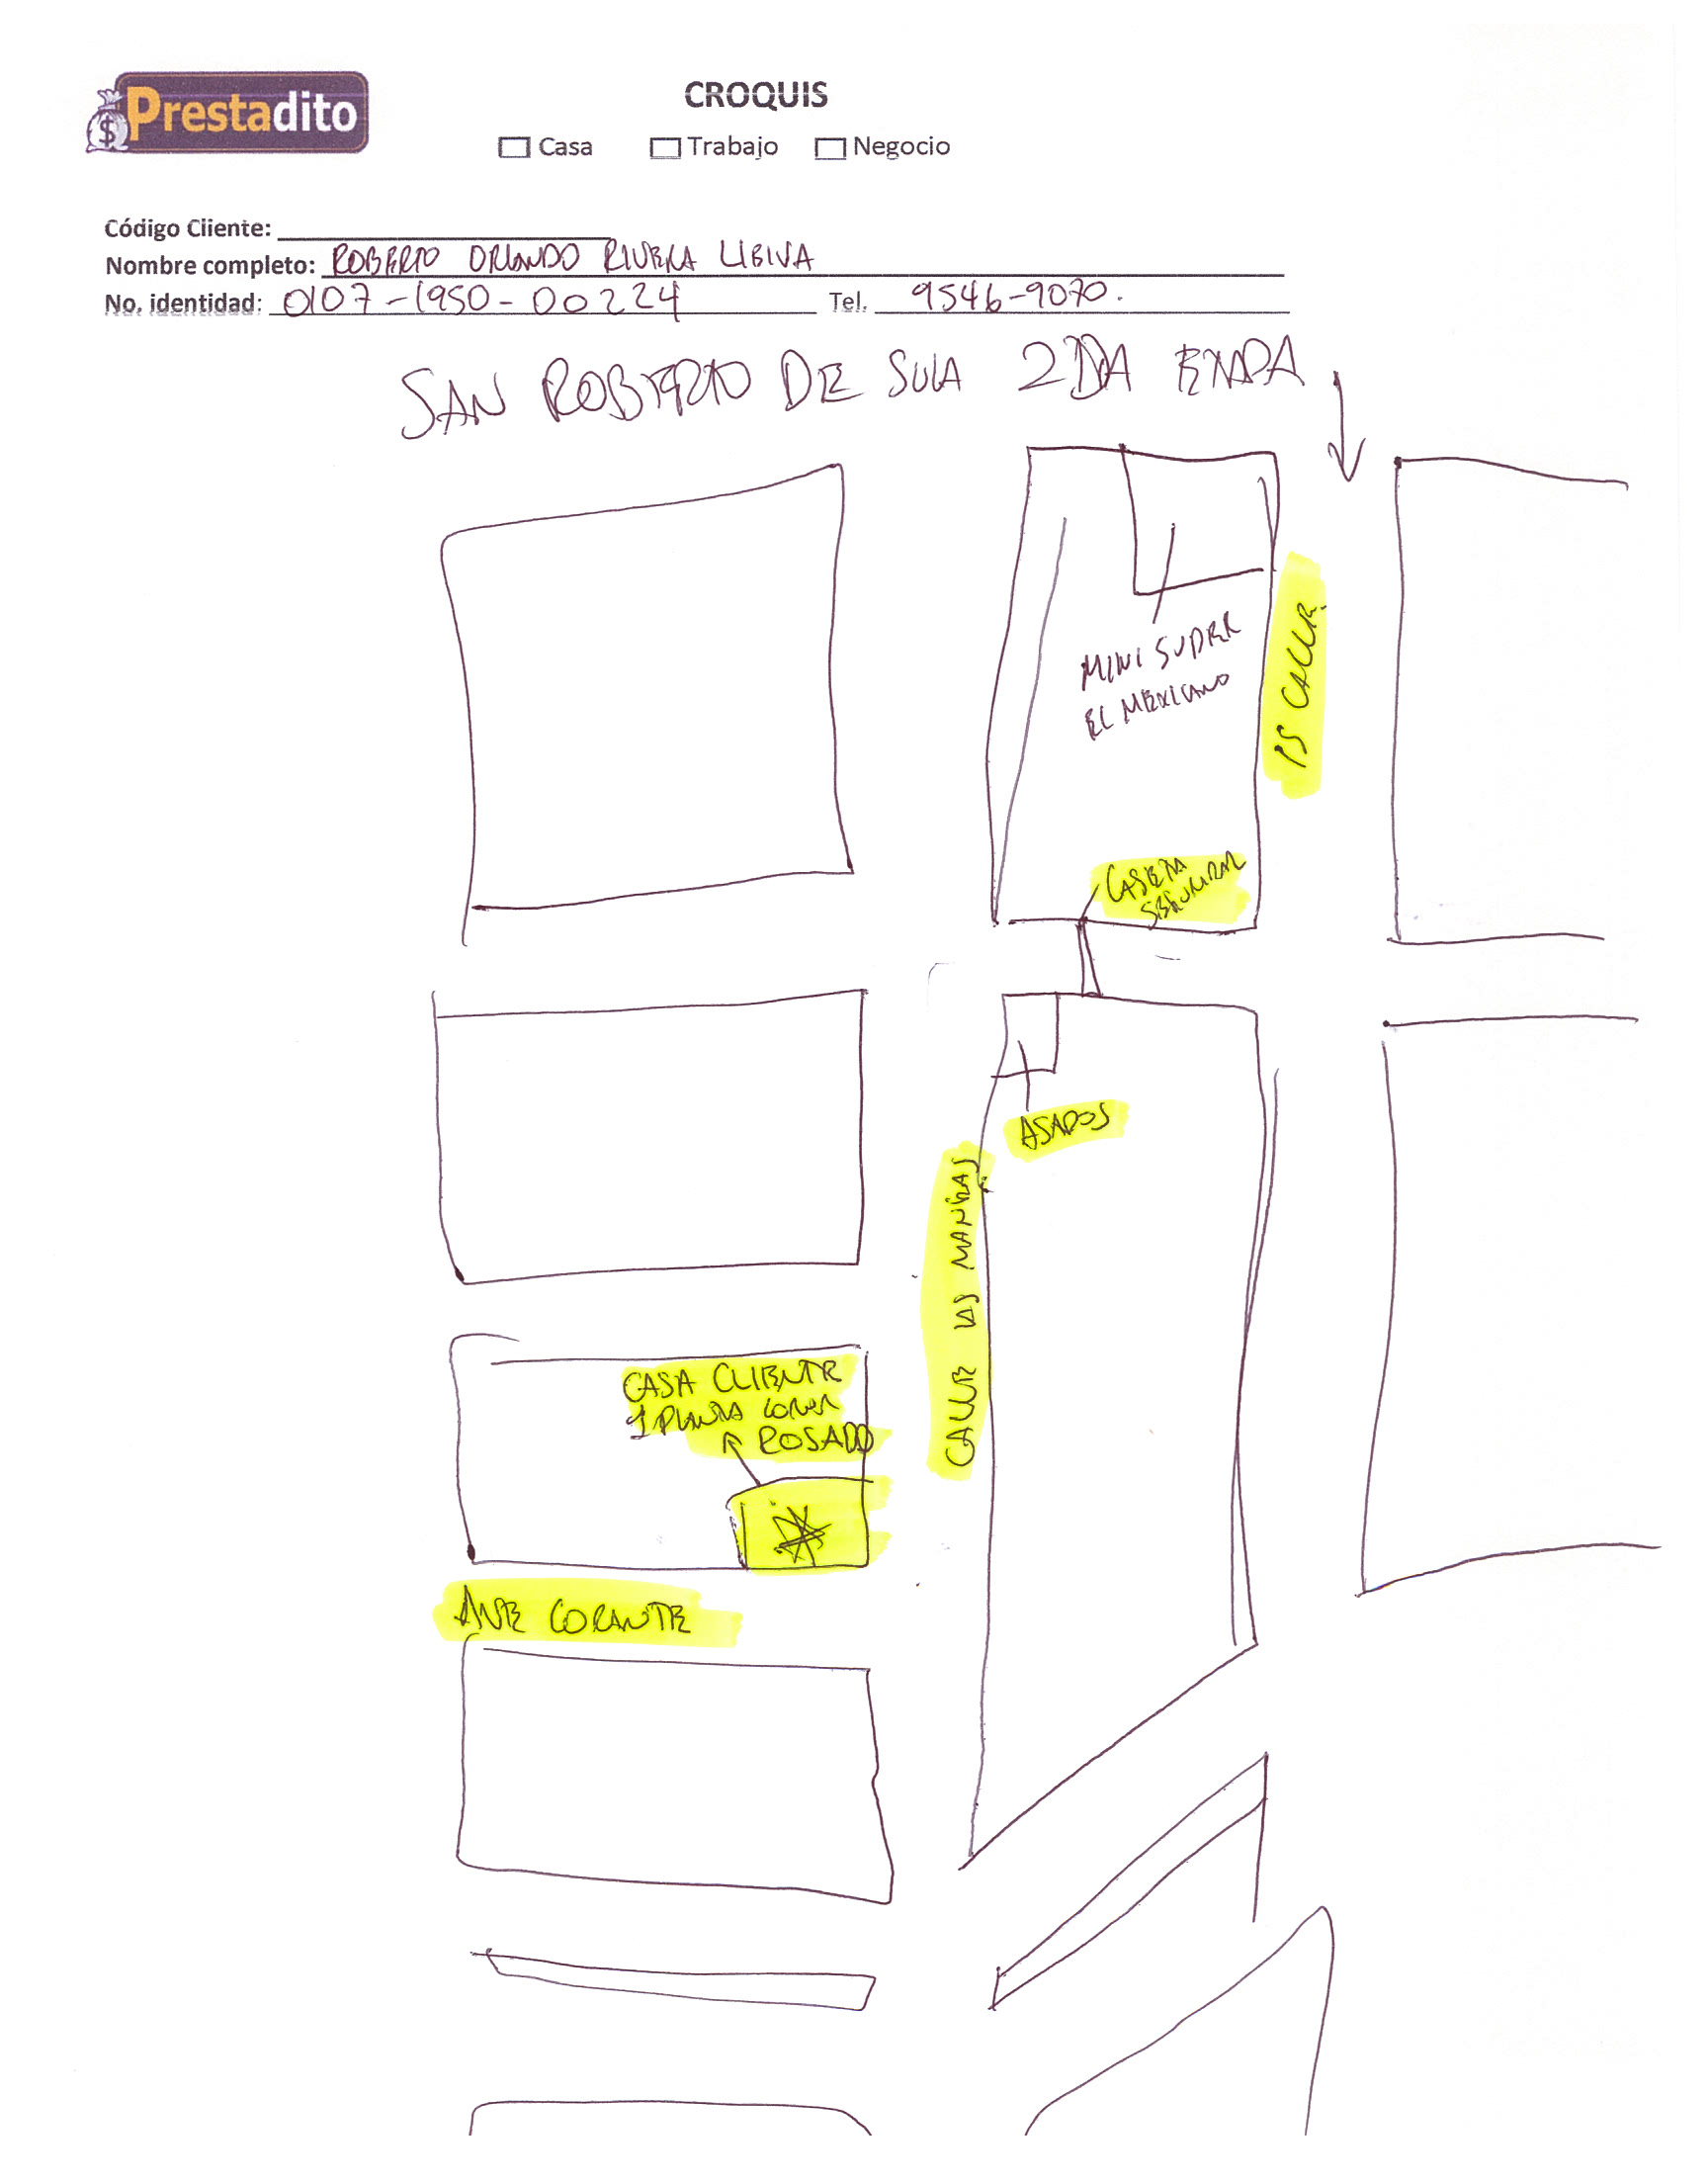 Prestadito
CROQUIS
Casa Trabajo Negocio
Código Cliente:
Nombre completo: ROBERTO ORLANDO RIVERA
No. identidad: 0107-1950-00224 Tel. 9546-9070.
SAN ROBERTO DE SULA 2DA ETAPA
MINI SUPER
EL MEXICANO
15 CALLE
CASETA
SEGURIDAD
ASADOS
CALLE LAS MANGAS
CASA CLIENTE
1 PLANTA COLOR
ROSADO
AVE